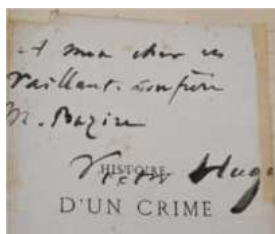 A mon cher et
vaillant confrère
M. Bazire
Victor Hugo
HISTOIRE
D'UN CRIME